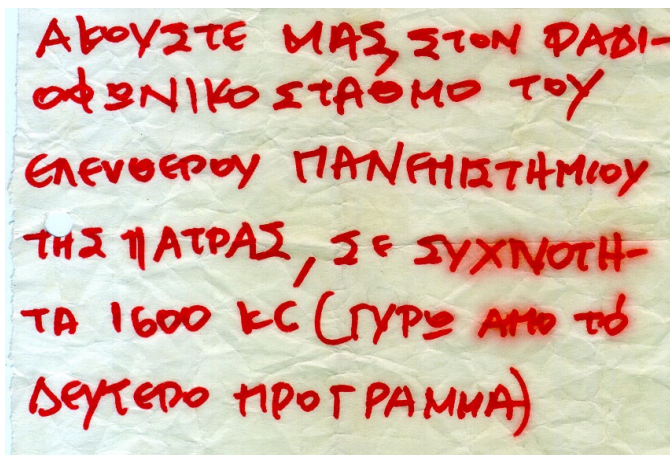 ΑΚΟΥΣΤΕ ΜΑΣ, ΣΤΟΝ ΡΑΔΙ-
ΟΦΩΝΙΚΟ ΣΤΑΘΜΟ ΤΟΥ
ΕΛΕΥΘΕΡΟΥ ΠΑΝΕΠΙΣΤΗΜΙΟΥ
ΤΗΣ ΠΑΤΡΑΣ, ΣΕ ΣΥΧΝΟΤΗ-
ΤΑ 1600 KC (ΓΥΡΩ ΑΠΟ ΤΟ
ΔΕΥΤΕΡΟ ΠΡΟΓΡΑΜΜΑ)